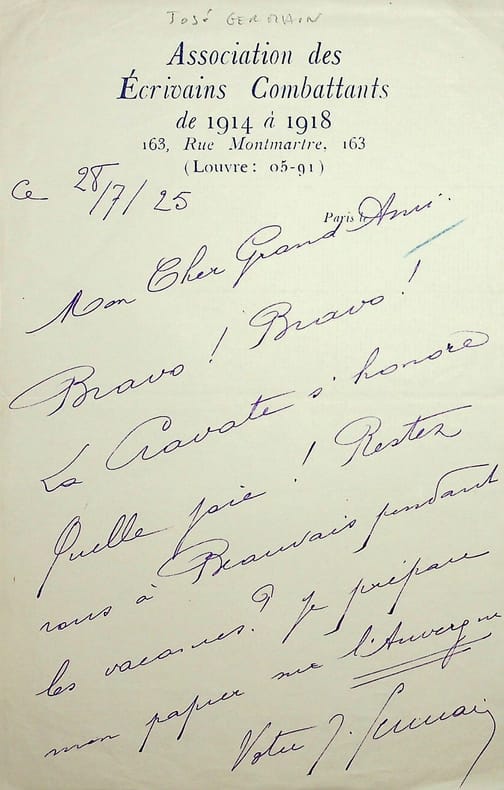 José Germain
Association des
Écrivains Combattants
de 1914 à 1918
163, Rue Montmartre, 163
(Louvre: 05-91)
Ce 28/7/25
Paris le
Mon Cher Grand Ami.
Bravo ! Bravo !
La Cravate s'honore
Quelle joie ! Restez
vous à Beauvais pendant
les vacances ? Je prépare
mon papier sur l'Auvergne
Votre J. Germain